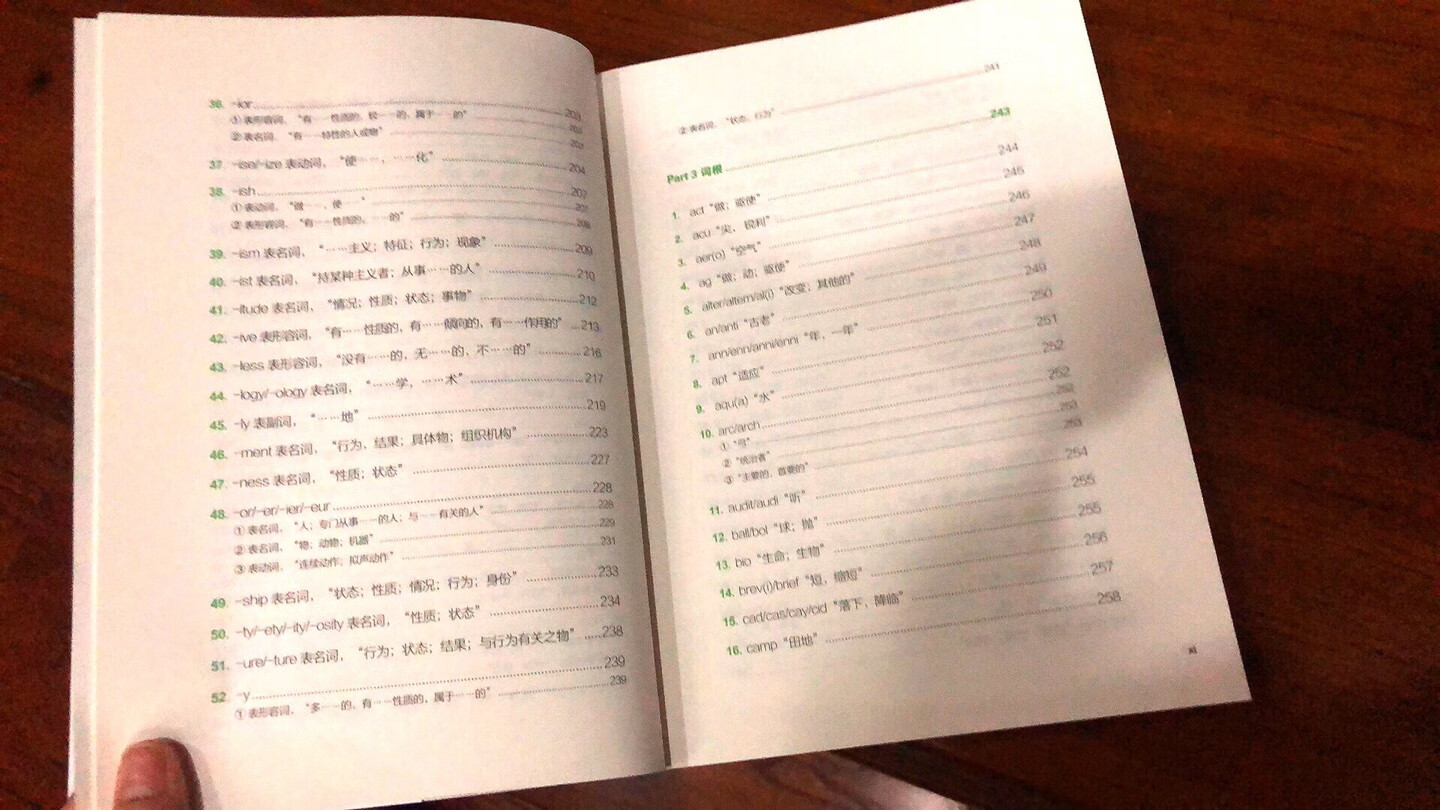 36. -ior 203
① 表形容词，“有……性质的，较……的，属于……的” 203
② 表名词，“有……特性的人或物” 203
37. -ise/-ize 表动词，“使……，……化” 204
38. -ish 207
① 表动词，“做……，使……” 207
② 表形容词，“有……性质的，……的” 208
39. -ism 表名词，“……主义；特征；行为；现象” 209
40. -ist 表名词，“持某种主义者；从事……的人” 210
41. -itude 表名词，“情况；性质；状态；事物” 212
42. -ive 表形容词，“有……性质的，有……倾向的，有……作用的” 213
43. -less 表形容词，“没有……的，无……的，不……的” 216
44. -logy/-ology 表名词，“……学，……术” 217
45. -ly 表副词，“……地” 219
46. -ment 表名词，“行为、结果；具体物；组织机构” 223
47. -ness 表名词，“性质；状态” 227
48. -or/-er/-ier/-eur 228
① 表名词，“人；专门从事……的人；与……有关的人” 228
② 表名词，“物；动物；机器” 229
③ 表动词，“连续动作；拟声动作” 231
49. -ship 表名词，“状态；性质；情况；行为；身份” 233
50. -ty/-ety/-ity/-osity 表名词，“性质；状态” 234
51. -ure/-ture 表名词，“行为；状态；结果；与行为有关之物” 238
52. -y 239
① 表形容词，“多……的，有……性质的，属于……的” 239
② 表名词，“状态、行为” 241
Part 3 词根 243
1. act “做；驱使” 244
2. acu “尖，锐利” 245
3. aer(o) “空气” 246
4. ag “做；动；驱使” 247
5. alter/altern/al(i) “改变；其他的” 248
6. an/anti “古老” 249
7. ann/enn/anni/enni “年，一年” 250
8. apt “适应” 251
9. aqu(a) “水” 252
10. arc/arch 252
① “弓” 252
② “统治者” 253
③ “主要的，首要的” 253
11. audit/audi “听” 254
12. ball/bol “球；抛” 255
13. bio “生命；生物” 255
14. brev(i)/brief “短，缩短” 256
15. cad/cas/cay/cid “落下，降临” 257
16. camp “田地” 258
XI